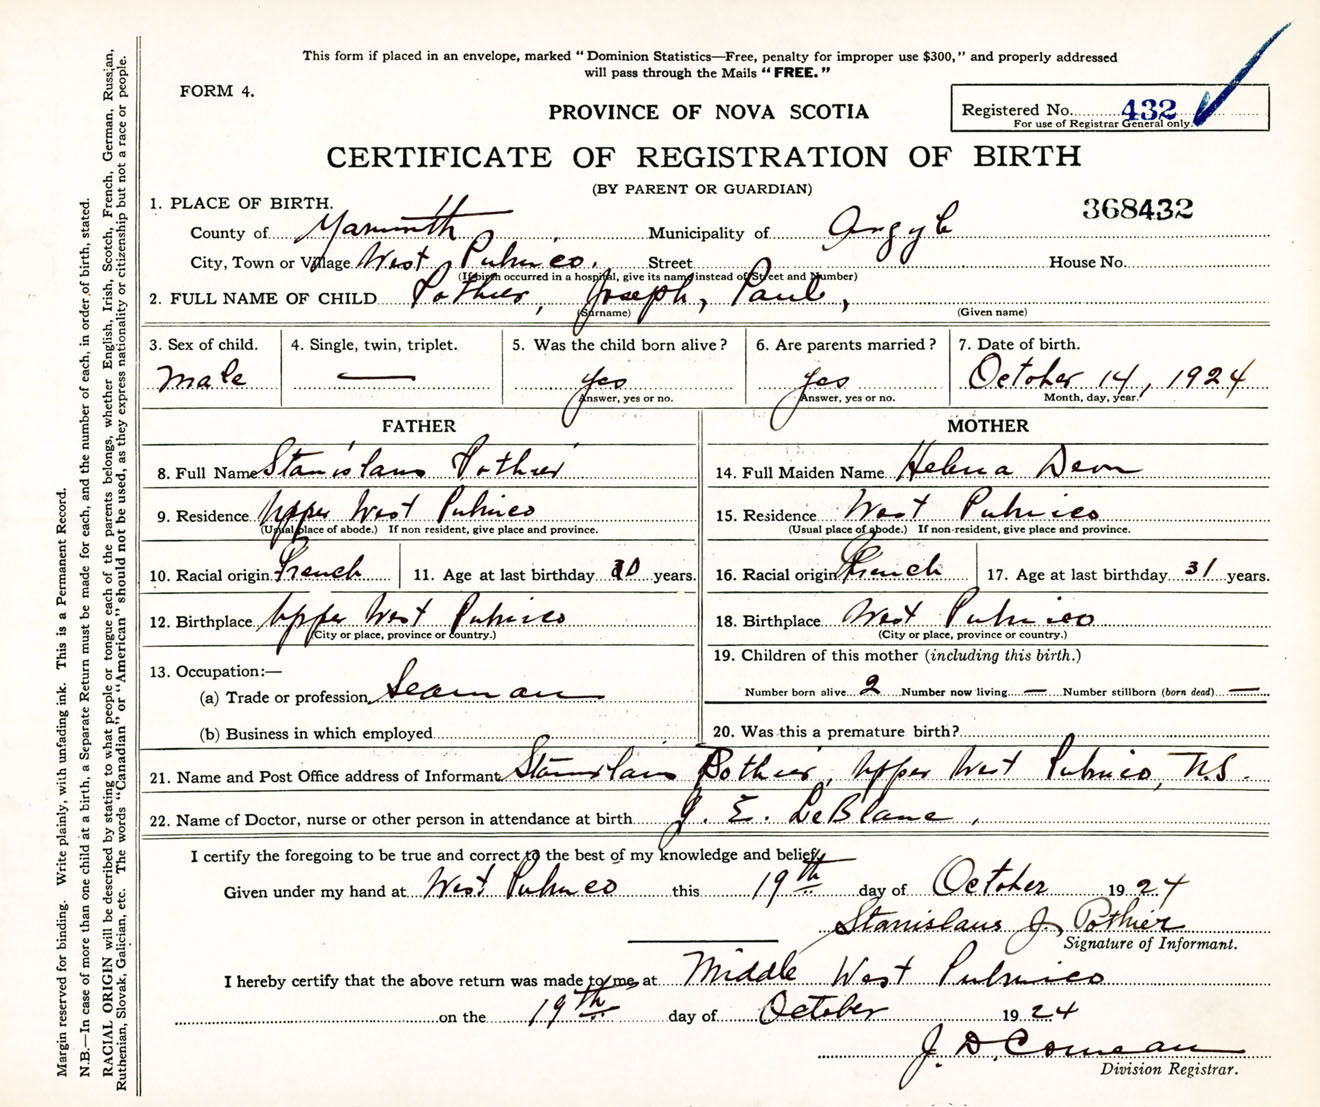 This form if placed in an envelope, marked "Dominion Statistics—Free, penalty for improper use $300," and properly addressed
will pass through the Mails "FREE."
FORM 4.
PROVINCE OF NOVA SCOTIA
Registered No. 432
For use of Registrar General only.
CERTIFICATE OF REGISTRATION OF BIRTH
(BY PARENT OR GUARDIAN)
368432
1. PLACE OF BIRTH.
County of Yarmouth Municipality of Argyle
City, Town or Village West Pubnico. Street House No.
(If birth occurred in a hospital, give its name instead of Street and Number)
2. FULL NAME OF CHILD Pothier, Joseph, Paul,
(Surname) (Given name)
3. Sex of child. 4. Single, twin, triplet. 5. Was the child born alive? 6. Are parents married? 7. Date of birth.
Male — yes yes October 14, 1924
Answer, yes or no. Answer, yes or no. Month, day, year.
FATHER MOTHER
8. Full Name Stanislaus Pothier 14. Full Maiden Name Helena Deon
9. Residence Upper West Pubnico 15. Residence West Pubnico
(Usual place of abode.) If non resident, give place and province. (Usual place of abode.) If non-resident, give place and province.
10. Racial origin French 11. Age at last birthday years. 16. Racial origin French 17. Age at last birthday 31 years.
12. Birthplace Upper West Pubnico 18. Birthplace West Pubnico
(City or place, province or country.) (City or place, province or country.)
13. Occupation:— 19. Children of this mother (including this birth.)
(a) Trade or profession Seaman Number born alive 2 Number now living — Number stillborn (born dead) —
(b) Business in which employed 20. Was this a premature birth?
21. Name and Post Office address of Informant Stanislaus Pothier, Upper West Pubnico, N.S.
22. Name of Doctor, nurse or other person in attendance at birth J. E. LeBlanc,
I certify the foregoing to be true and correct to the best of my knowledge and belief.
Given under my hand at West Pubnico this 19th day of October 1924
Stanislaus J. Pothier
Signature of Informant.
I hereby certify that the above return was made to me, at Middle West Pubnico
on the 19th day of October 1924
J. D. Comeau
Division Registrar.
Margin reserved for binding. Write plainly, with unfading ink. This is a Permanent Record.
N.B.—In case of more than one child at a birth, a Separate Return must be made for each, and the number of each, in order of birth, stated.
RACIAL ORIGIN will be described by stating to what people or tongue each of the parents belongs, whether English, Irish, Scotch, French, German, Russian,
Ruthenian, Slovak, Galician, etc. The words "Canadian" or "American" should not be used, as they express nationality or citizenship but not a race or people.